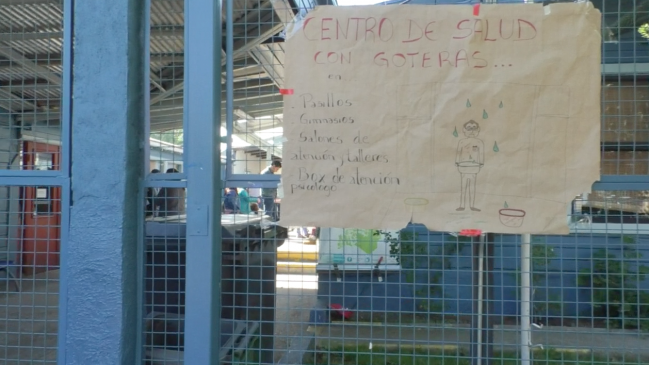 CENTRO DE SALUD
CON GOTERAS...
en
- Pasillos
- Gimnasios
- Salones de
atención y talleres
- Box de atencion
psicologo